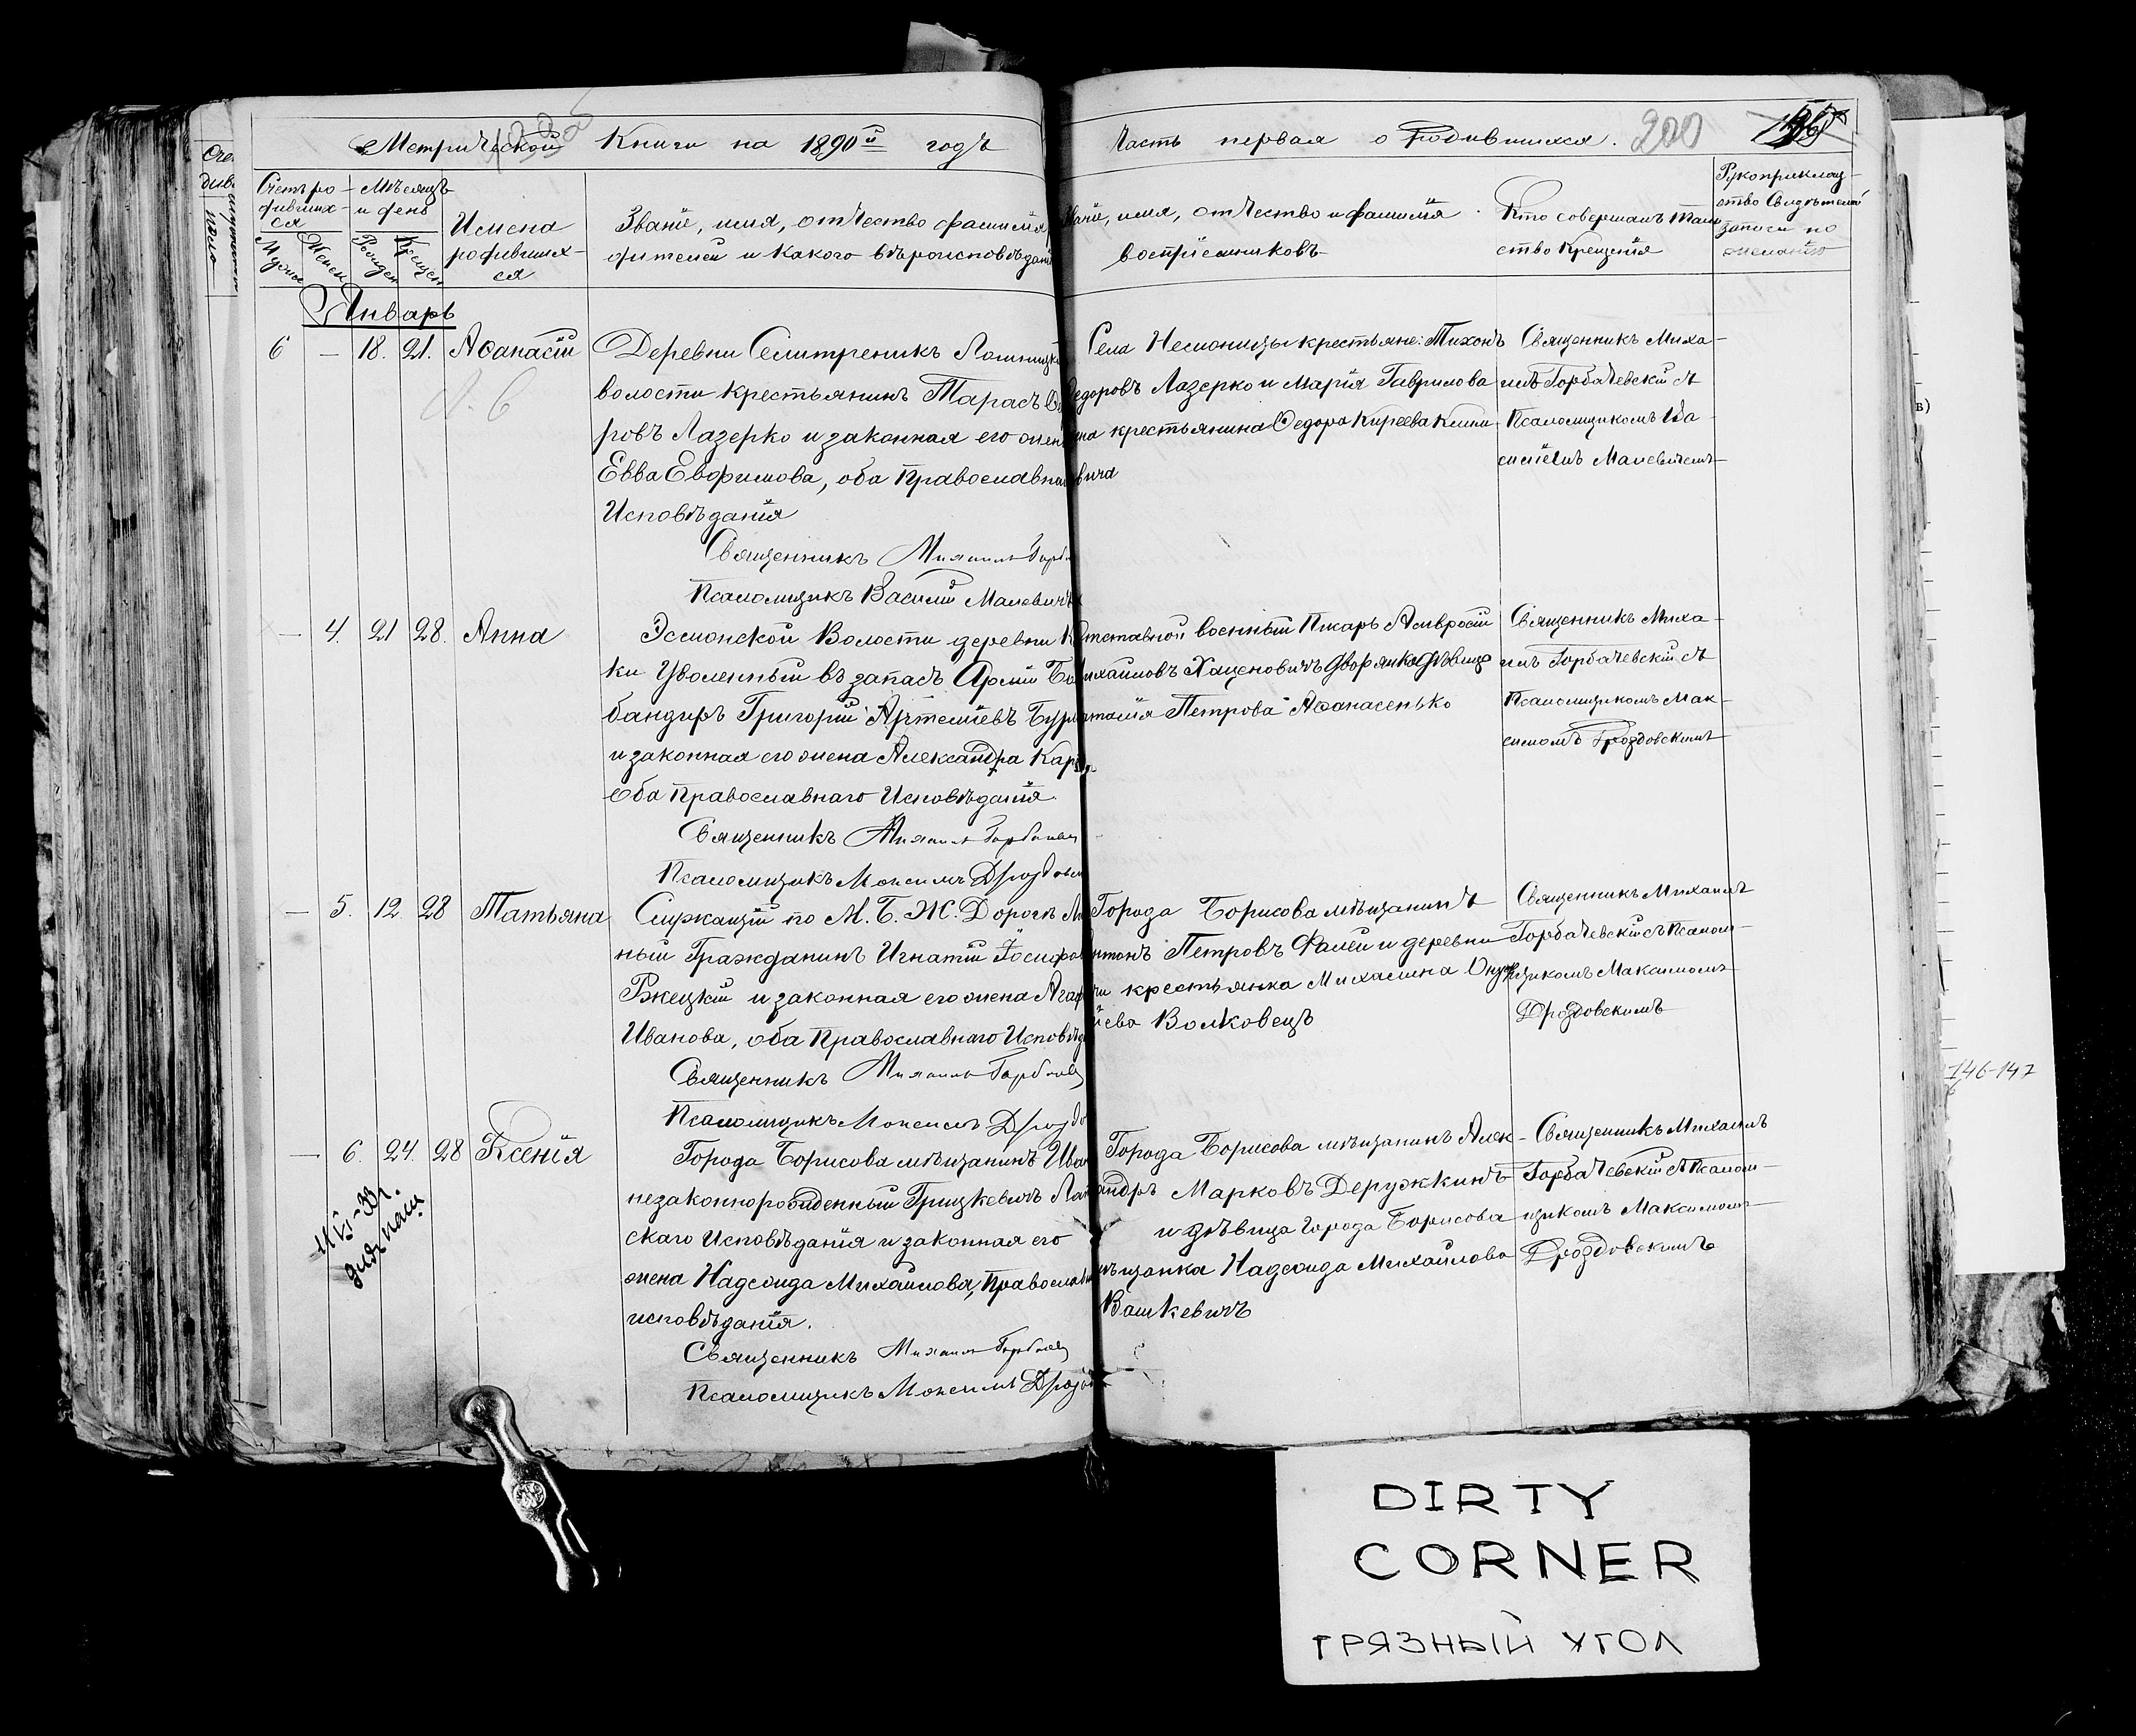 Метрической Книги на 1890й годъ
Часть первая о Родившихся. 200
Счетъ ро-
дивших-
ся
Мужск
Женск
Мѣсяцъ
и день
Рожден
Крещен
Имена
родивших-
ся
Званіе, имя, отчество фамилія
дителей и какого вѣроисповѣдані
имя, отчество и фамилія
воспріемниковъ
Кто совершалъ таин
ство Крещенія
Рукоприклад-
ство Свидѣтелей
записи по
желанію
Январь
6 — 18. 21. Аѳанасій
Деревни Селитреникъ Лошницк
волости крестьянинъ Тарасъ
ровъ Лазерко и законная его жен
Евва Евфимова, оба Православна
Исповѣданія
Священникъ Михаилъ Горб
Псаломщикъ Василій Малевичъ
Села Несмоницы крестьяне: Тихонъ
едоровъ Лазерко и Марія Гаврилова
на крестьянина Ѳедора Киреева Клими-
вича
Священникъ Миха-
илъ Горбачевскій съ
Псаломщикомъ Ва-
силіемъ Малевичемъ
— 4. 21 28. Анна
Эсмонской Волости деревни
ки Уволенный въ запасъ Арміи Бо
бандиръ Григорій Артеміевъ Бур
и законная его жена Александра Кар
Оба Православнаго Исповѣданія.
Священникъ Михаилъ Горбачев
Псаломщикъ Максимъ Дроздовс
тставной военный Писарь Амвросій
ихайловъ Хаценовичъ дворянка дѣвица
талія Петрова Аѳанасенько
Священникъ Миха-
илъ Горбачевскій съ
Псаломщикомъ Мак-
симомъ Дроздовскимъ
— 5. 12. 28 Татьяна
Служащій по М. Б. Ж. Дорогѣ М
ный Гражданинъ Игнатій Іосифов
Ржецкій и законная его жена Агаф
Иванова, оба Православнаго Исповѣд
Священникъ Михаилъ Горбачев
Псаломщикъ Максимъ Дроздо
Города Борисова мѣщанинъ
нтонъ Петровъ Фалей и деревни
чи крестьянка Михалина Онуфр
іева Волковецъ
Священникъ Михаилъ
Горбачевскій съ Псалом-
щикомъ Максимомъ
Дроздовскимъ
— 6. 24. 28 Ксенія
Города Борисова мѣщанинъ Иван
незаконнорожденный Грицкевичъ Лат
скаго Исповѣданія и законная его
жена Надежда Михайлова, Православн
исповѣданія.
Священникъ Михаилъ Горбачев
Псаломщикъ Максимъ Дроздо
Города Борисова мѣщанинъ Алек-
андръ Марковъ Деружкинъ
и дѣвица города Борисова
мѣщанка Надежда Михайлова
Вашкевичъ
Священникъ Михаилъ
Горбачевскій съ Псалом-
щикомъ Максимомъ
Дроздовскимъ
146-147
DIRTY
CORNER
ГРЯЗНЫЙ УГОЛ